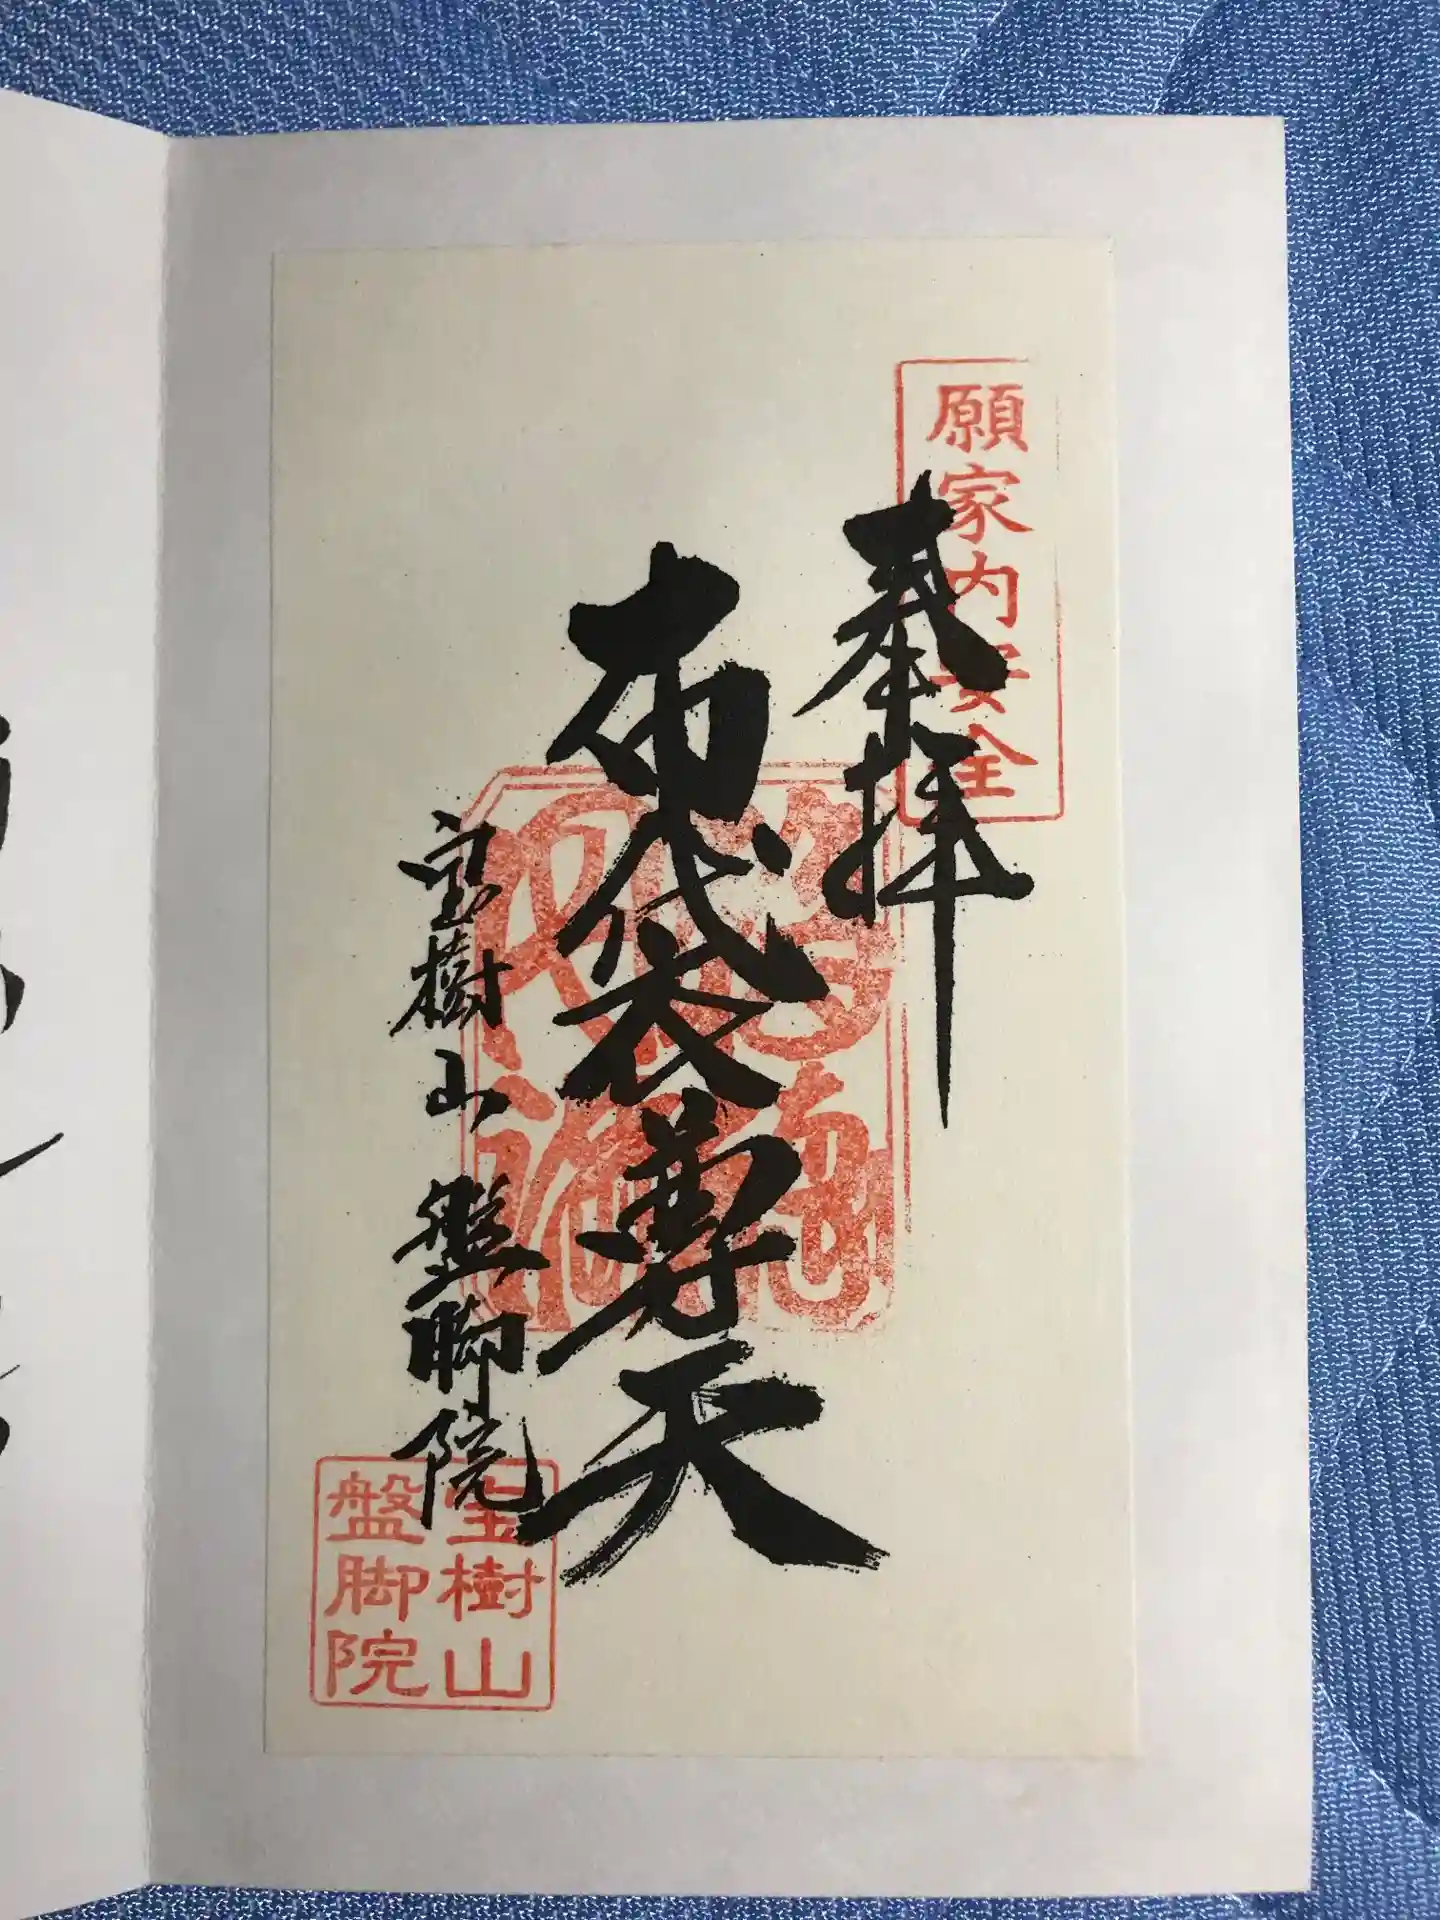 願家内安全
奉拝
布袋尊天
宝樹山 盤脚院
宝樹山
盤脚院